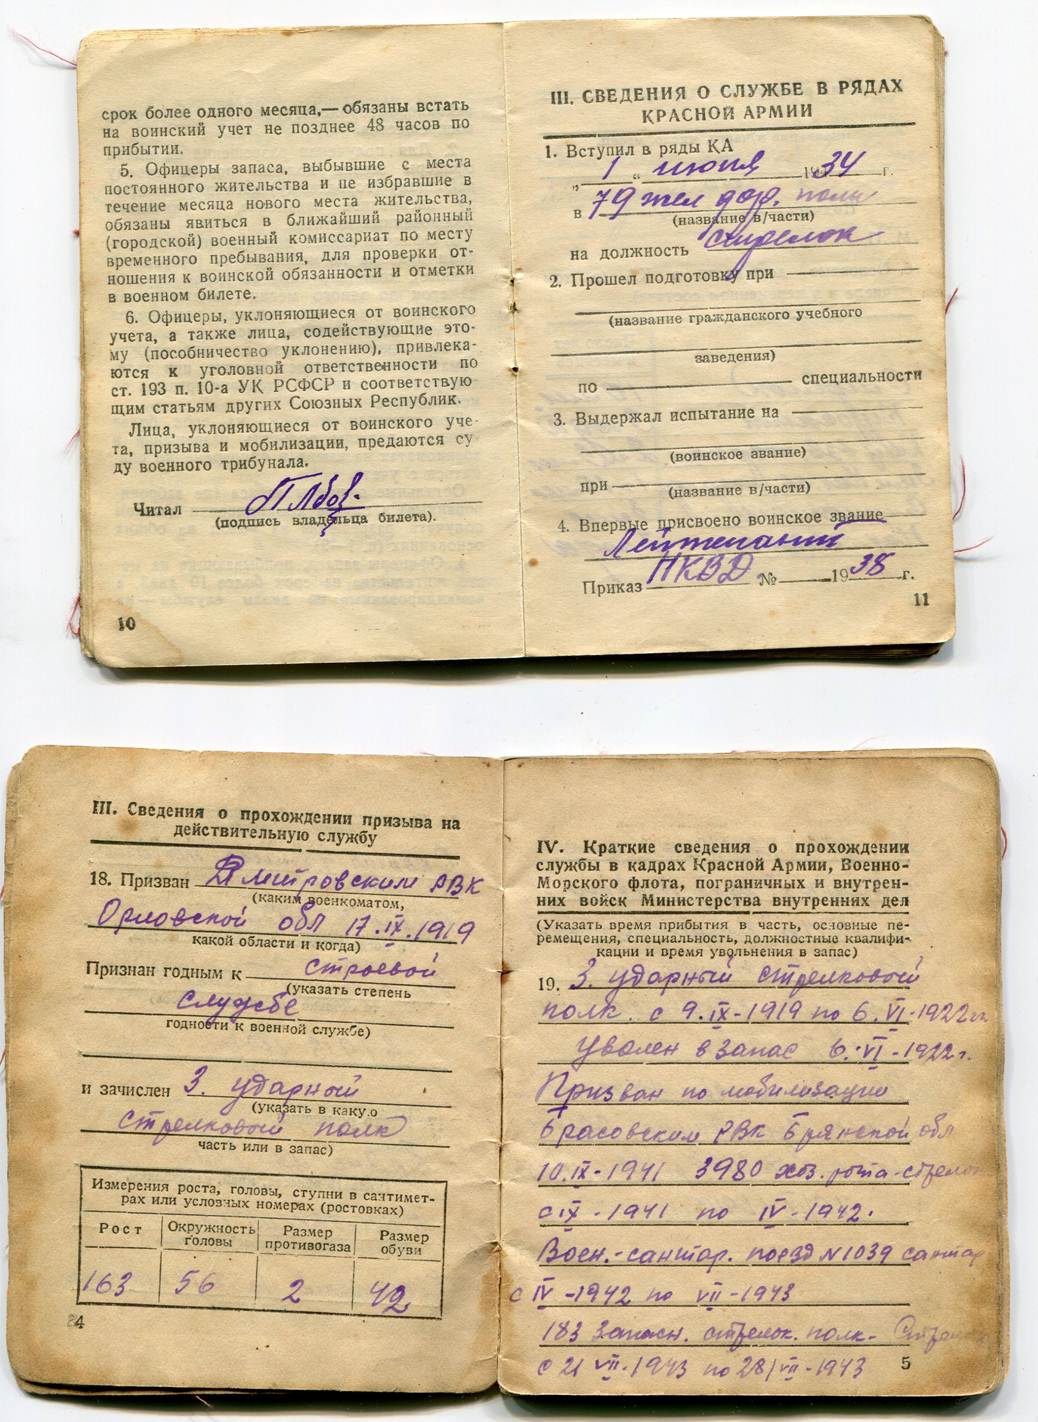 срок более одного месяца,— обязаны встать
на воинский учет не позднее 48 часов по
прибытии.
5. Офицеры запаса, выбывшие с места
постоянного жительства и не избравшие в
течение месяца нового места жительства,
обязаны явиться в ближайший районный
(городской) военный комиссариат по месту
временного пребывания, для проверки от-
ношения к воинской обязанности и отметки
в военном билете.
6. Офицеры, уклоняющиеся от воинского
учета, а также лица, содействующие это-
му (пособничество уклонению), привлека-
ются к уголовной ответственности по
ст. 193 п. 10-а УК РСФСР и соответствую
щим статьям других Союзных Республик.
Лица, уклоняющиеся от воинского уче-
та, призыва и мобилизации, предаются су
ду военного трибунала.
Читал
(подпись владельца билета).
10
III. СВЕДЕНИЯ О СЛУЖБЕ В РЯДАХ
КРАСНОЙ АРМИИ
1. Вступил в ряды КА
„ 1 „ июня 1934 г.
в 79 жел дор. полк
(название в/части)
на должность стрелок
2. Прошел подготовку при
(название гражданского учебного
заведения)
по специальности
3. Выдержал испытание на
(воинское звание)
при
(название в/части)
4. Впервые присвоено воинское звание
Лейтенант
Приказ НКВД № 1938 г.
11
III. Сведения о прохождении призыва на
действительную службу
18. Призван Дмитровским РВК
(каким военкоматом,
Орловской обл 17.IX.1919
какой области и когда)
Признан годным к строевой
(указать степень
службе
годности к военной службе)
и зачислен 3. ударный
(указать в какую
стрелковый полк
часть или в запас)
Измерения роста, головы, ступни в сантимет-
рах или условных номерах (ростовках)
Рост Окружность головы Размер противогаза Размер обуви
163 56 2 42
4
IV. Краткие сведения о прохождении
службы в кадрах Красной Армии, Военно-
Морского флота, пограничных и внутрен-
них войск Министерства внутренних дел
(Указать время прибытия в часть, основные пе-
ремещения, специальность, должностные квалифи-
кации и время увольнения в запас)
19. 3. ударный стрелковый
полк. с 9.IX-1919 по 6.VI-1922
уволен в запас 6.VI-1922 г.
Призван по мобилизации
Брасовским РВК Брянской обл
10.IX-1941 3980 хоз. рота-стрелок
с IX-1941 по IV-1942.
Воен.-санитар. поезд N1039 санитар
с IV-1942 по VII-1943
183 Запасн. стрелок. полк- Стрелок
с 21 VII-1943 по 28/VII-1943
5